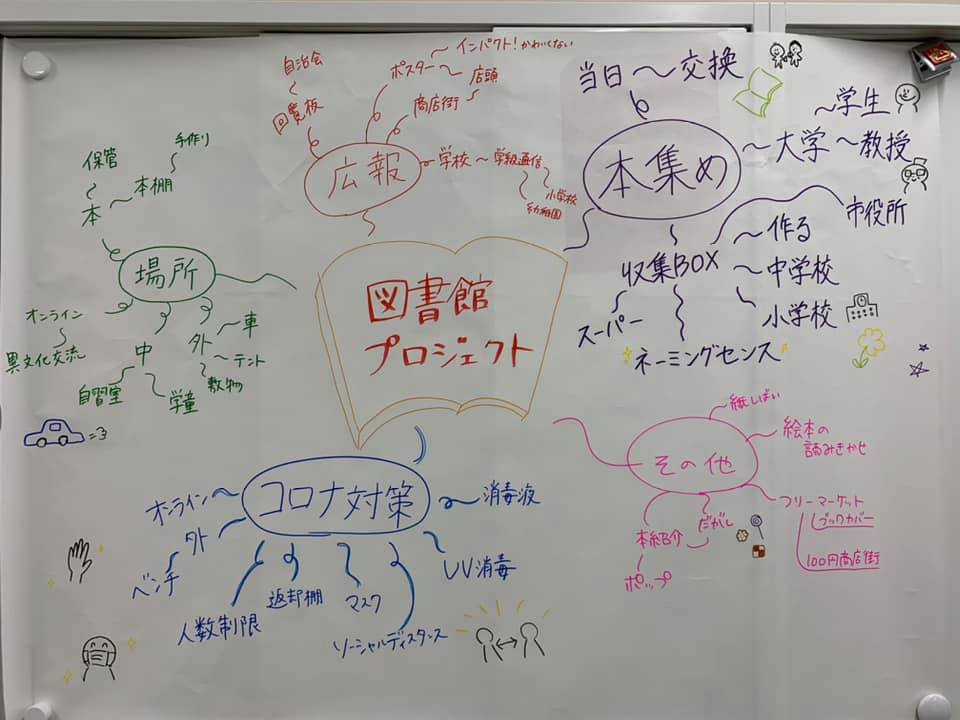 図書館
プロジェクト
広報
自治会
回覧板
ポスター
インパクト！かわいくない
店頭
商店街
学校
学級通信
小学校
幼稚園
本集め
当日
交換
大学
学生
教授
市役所
収集BOX
作る
中学校
小学校
スーパー
ネーミングセンス
場所
本
保管
本棚
手作り
オンライン
異文化交流
中
自習室
学童
外
車
テント
敷物
コロナ対策
オンライン
外
ベンチ
人数制限
返却棚
マスク
ソーシャルディスタンス
UV消毒
消毒液
その他
紙しばい
絵本の
読みきかせ
フリーマーケット
ブックカバー
100円商店街
だがし
本紹介
ポップ